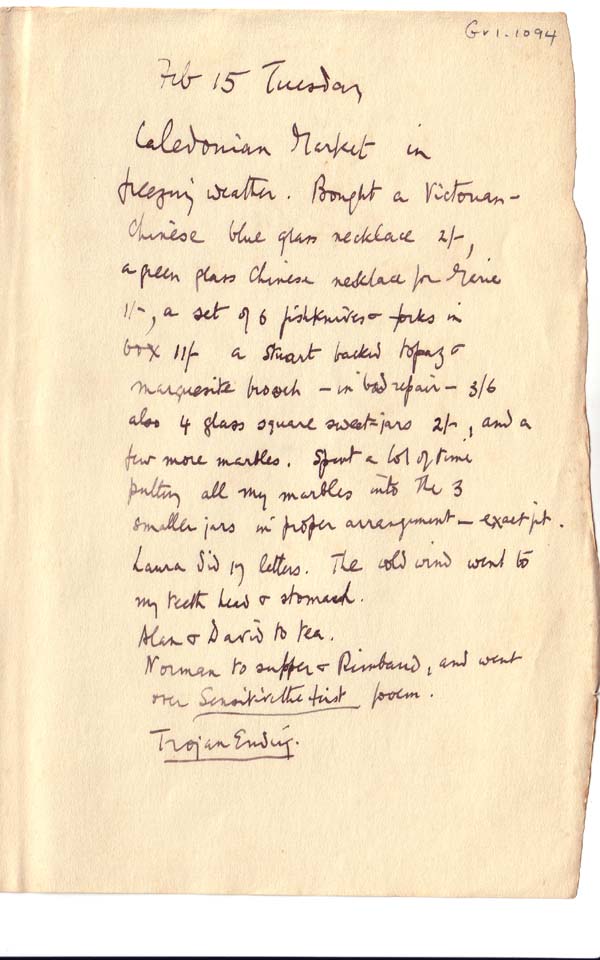 Gr1.1094
Feb 15 Tuesday
Caledonian Market in
freezing weather. Bought a Victorian-
Chinese blue glass necklace 2/-,
a green glass Chinese necklace for Merie
1/-, a set of 6 fishknives & forks in
box 11/- a Stuart backed topaz &
marquesite brooch - in bad repair - 3/6
also 4 glass square sweet-jars 2/-, and a
few more marbles. Spent a lot of time
putting all my marbles into the 3
smaller jars in proper arrangement - exact fit.
Laura did 17 letters. The cold wind went to
my teeth head & stomach.
Alan & David to tea.
Norman to supper & Rimbaud, and went
over Sensitive the first poem.
Trojan Ending.